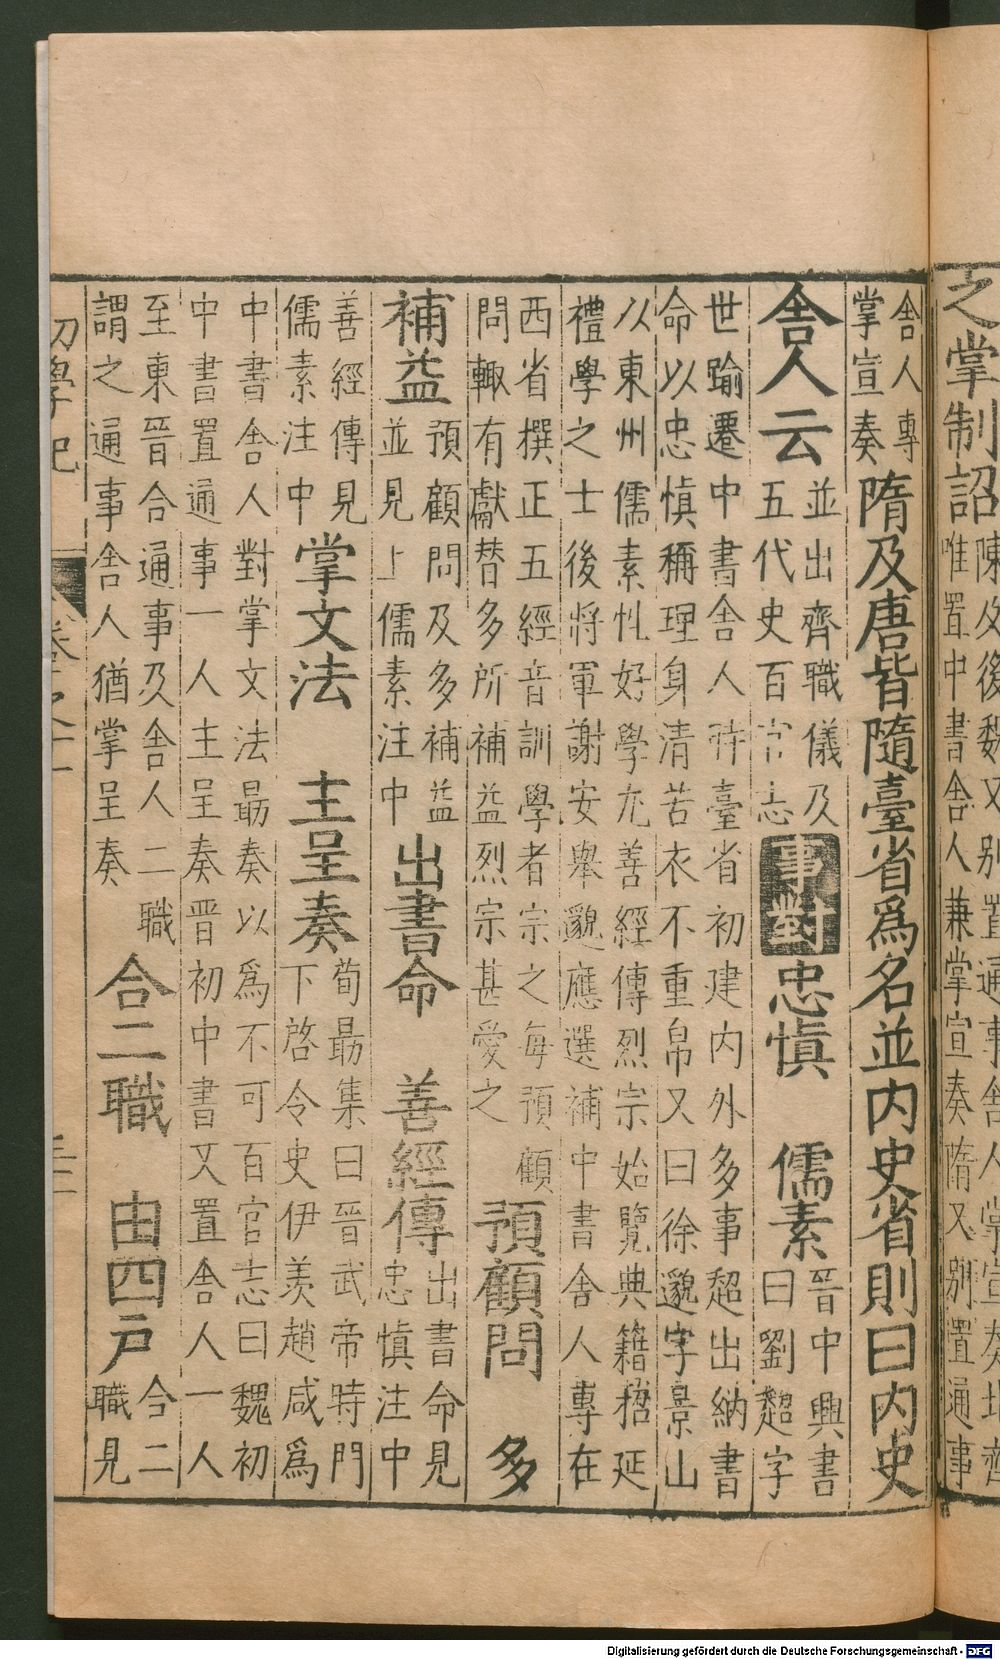 之掌制詔陳及後魏又別置通事舍人掌宣奏北齊唯置中書舍人兼掌宣奏隋又別置通事
舍人專掌宣奏隋及唐皆隨臺省爲名並内史省則曰内史
舍人云並出齊職儀及五代史百官志事對忠慎 儒素晉中興書曰劉超字
世踰遷中書舍人時臺省初建内外多事超出納書命以忠慎稱理身清苦衣不重帛又曰徐邈字景山
以東州儒素性好學尤善經傳烈宗始覽典籍招延禮學之士後將軍謝安舉邈應選補中書舍人專在
西省撰正五經音訓學者宗之每預顧問輙有獻替多所補益烈宗甚愛之預顧問 多
補益預顧問及多補益並見上儒素注中出書命 善經傳出書命見忠慎注中
善經傳見儒素注中掌文法 主呈奏荀勗集曰晉武帝時門下啓令史伊羡趙咸爲
中書舍人對掌文法勗奏以爲不可百官志曰魏初中書置通事一人主呈奏晉初中書又置舍人一人
至東晉合通事及舍人二職謂之通事舍人猶掌呈奏合二職 由四戸合二職見
初學記 卷之十一 三十一
Digitalisierung gefördert durch die Deutsche Forschungsgemeinschaft - DFG